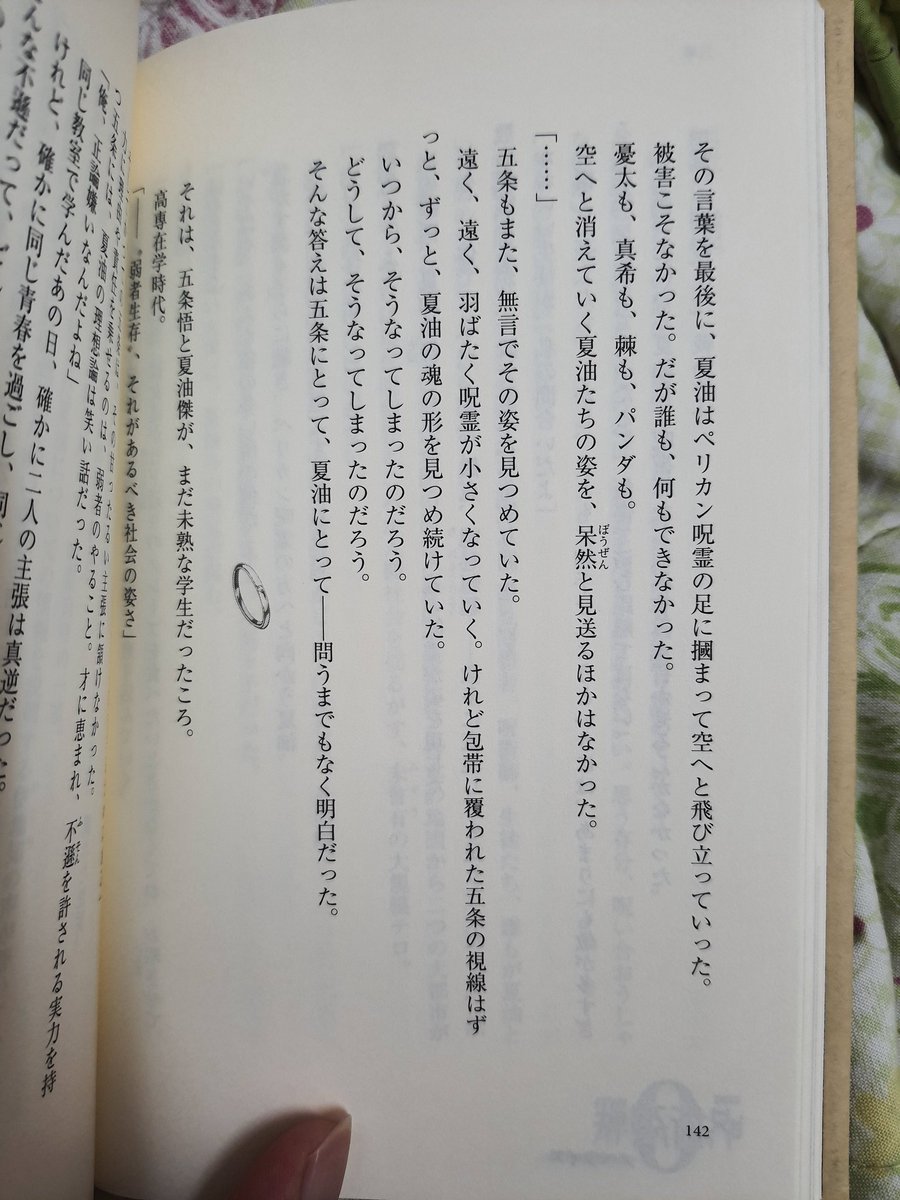 その言葉を最後に、夏油はペリカン呪霊の足に摑まって空へと飛び立っていった。
被害こそなかった。だが誰も、何もできなかった。
憂太も、真希も、棘も、パンダも。
空へと消えていく夏油たちの姿を、呆然と見送るほかはなかった。
ぼうぜん
「……」
五条もまた、無言でその姿を見つめていた。
遠く、遠く、羽ばたく呪霊が小さくなっていく。けれど包帯に覆われた五条の視線はず
っと、ずっと、夏油の魂の形を見つめ続けていた。
いつから、そうなってしまったのだろう。
どうして、そうなってしまったのだろう。
そんな答えは五条にとって、夏油にとって――問うまでもなく明白だった。
それは、五条悟と夏油傑が、まだ未熟な学生だったころ。
高専在学時代。
「――〝弱者生存〟、それがあるべき社会の姿さ」
つ五条には、夏油の理想論は笑い話だった。
「俺、正論嫌いなんだよね」
同じ教室で学んだあの日、確かに二人の主張は真逆だった。
けれど、確かに同じ青春を過ごし、
142